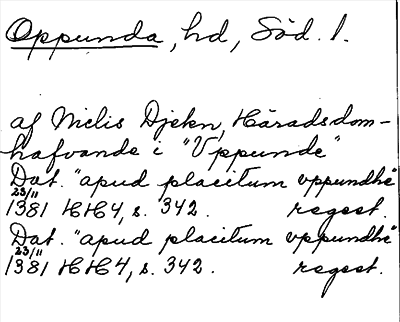 Oppunda, hd, Söd. l.
af Nielis Djekn, Häradsdom-
hafvande i "Vppunde"
Dat. "apud placitum vppundhe"
23/11
1381 HH4, s. 342. regest.
Dat. "apud placitum vppundhe"
23/11
1381 HH4, s. 342. regest.